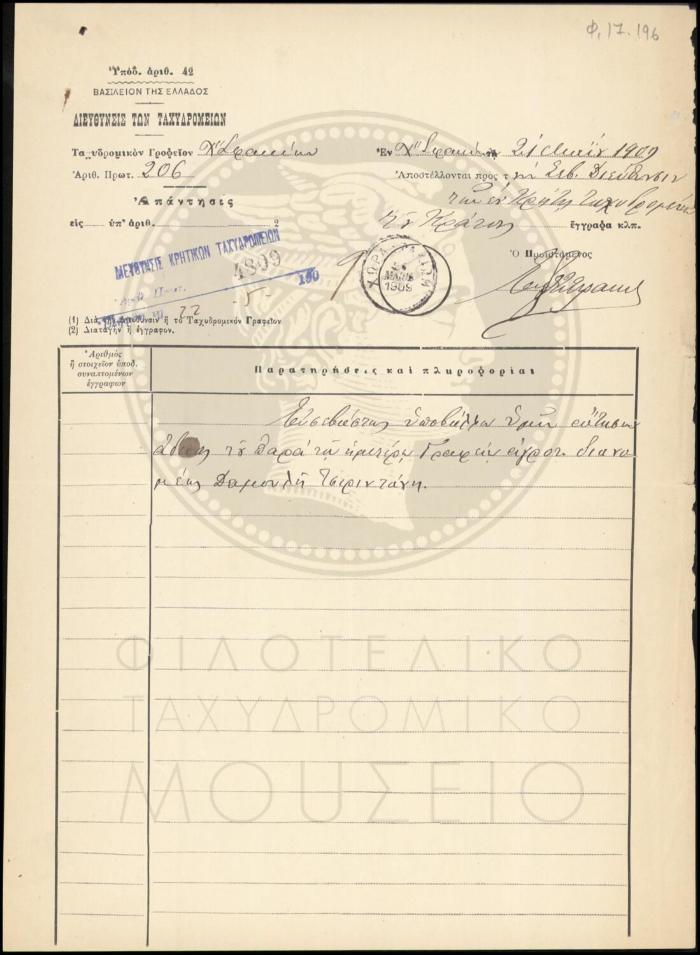 Φ. 17. 196
Ὑπόδ. ἀριθ. 42
ΒΑΣΙΛΕΙΟΝ ΤΗΣ ΕΛΛΑΔΟΣ
ΔΙΕΥΘΥΝΣΙΣ ΤΩΝ ΤΑΧΥΔΡΟΜΕΙΩΝ
Ταχυδρομικὸν Γραφεῖον Χ" Σφακίων Ἐν Χ" Σφακίων τῇ 21 Μαΐου 1909
Ἀριθ. Πρωτ. 206 Ἀποστέλλονται πρὸς τὴν Σεβ. Διεύθυνσιν
Ἀπάντησις τῶν ἐν Κρήτῃ Ταχυδρομείων
εἰς ὑπ' ἀριθ. 2 ἔγγραφα κλπ.
ΔΙΕΥΘΥΝΣΙΣ ΚΡΗΤΙΚΩΝ ΤΑΧΥΔΡΟΜΕΙΩΝ
Ὁ Προϊστάμενος
4809
190
22
ΧΩΡΑ ΣΦΑΚΙΩΝ
1909
(1) Διὰ τὴν Διεύθυνσιν ἢ τὸ Ταχυδρομικὸν Γραφεῖον
(2) Διαταγὴν ἢ ἔγγραφον.
Ἀριθμὸς
ἢ στοιχεῖον ὑποδ.
συναπτομένων
ἐγγράφων
Παρατηρήσεις καὶ πληροφορίαι
Εὐσεβάστως ὑποβάλλω ὑμῖν αἴτησιν
ἀδείας τοῦ παρὰ τῷ ἡμετέρῳ Γραφείῳ ἀγροτ. διανο
μέως
ΦΙΛΟΤΕΛΙΚΟ
ΤΑΧΥΔΡΟΜΙΚΟ
ΜΟΥΣΕΙΟ